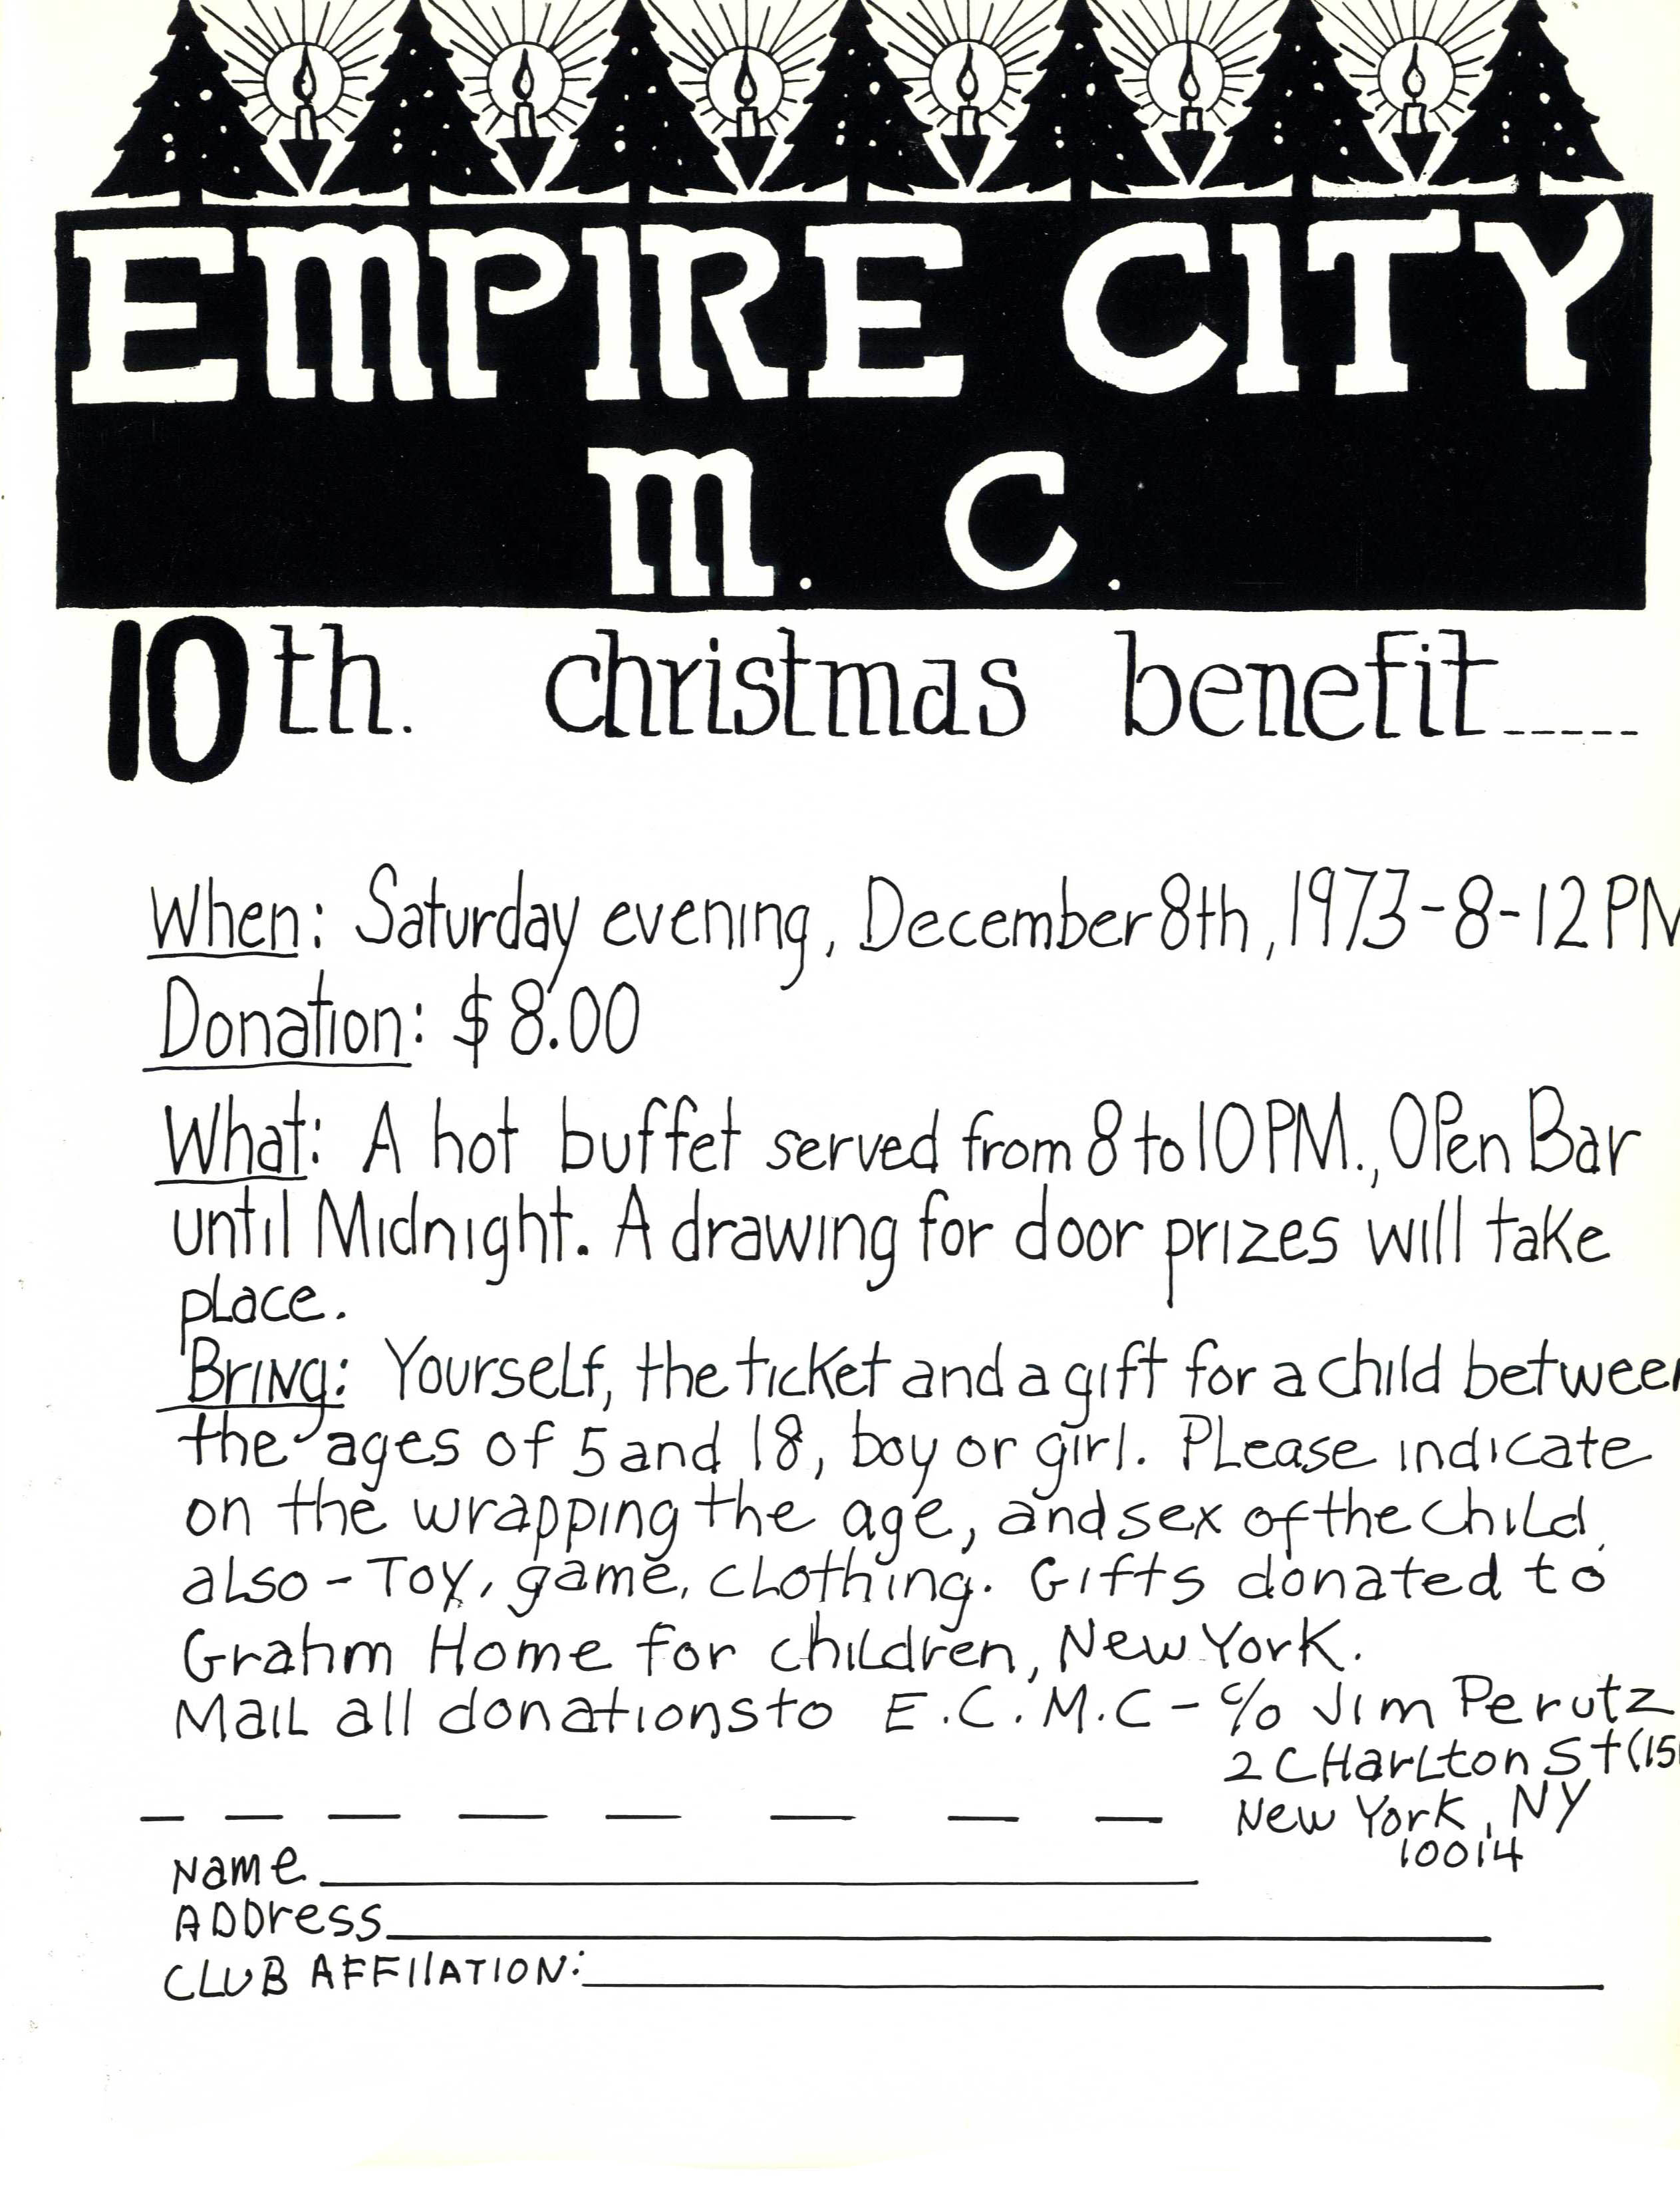 EMPIRE CITY
M. C.
10th. christmas benefit-----
When: Saturday evening, December 8th, 1973-8-12 PM
Donation: $8.00
What: A hot buffet served from 8 to 10 PM., OPen Bar
until Midnight. A drawing for door prizes will take
place.
Bring: Yourself, the ticket and a gift for a child between
the ages of 5 and 18, boy or girl. PLease indicate
on the wrapping the age, and sex of the child,
also - Toy, game, clothing. Gifts donated to
Grahm Home for children, New York.
Mail all donations to E.C.M.C - c/o Jim Perutz
2 CHarlton St (15
New York, NY
10014
Name
ADDress
CLUB AFFIlATION: